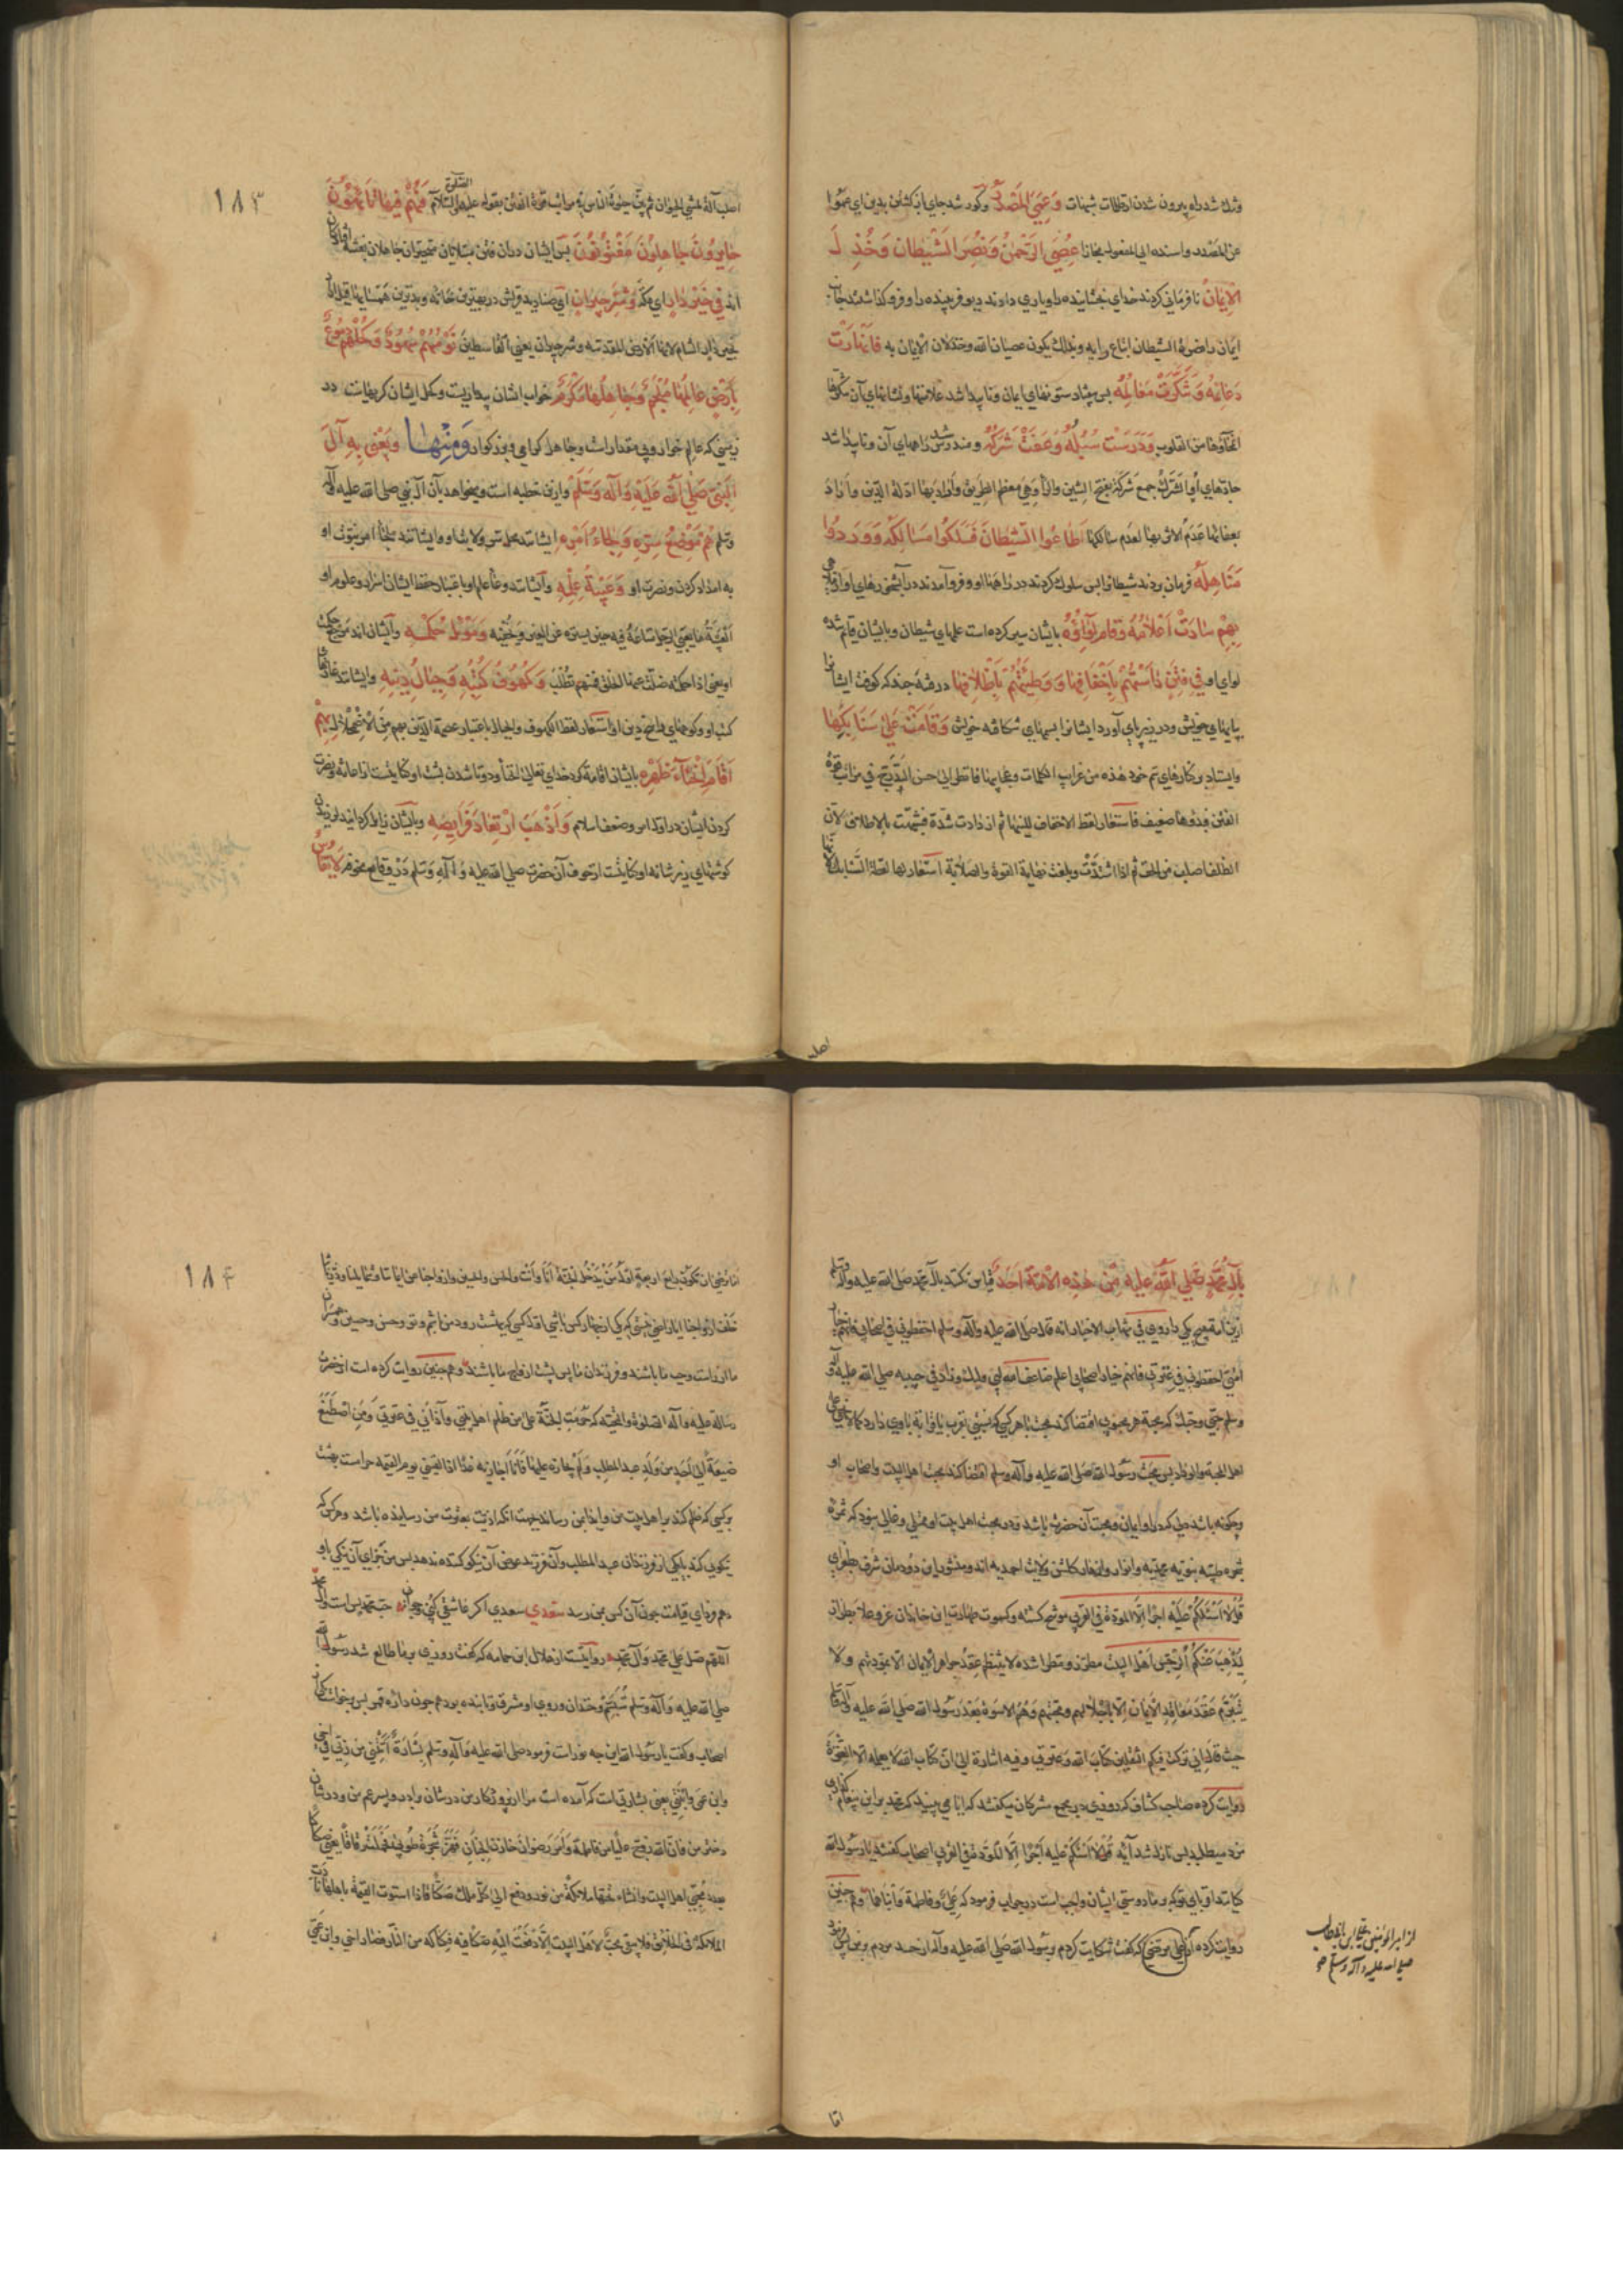 وتنك شد راه بيرون شدن از ظلمات شبهات وَعَمِيَ المَصْدَرُ وكور شد جاى باز كشتن بدين اى عموا
عن المصدر واسنده الى المفعول مجازا عُصِيَ الرَّحْمٰنُ وَنُصِرَ الشَّيْطان وَخُذِلَ
الإيمانُ نافرمانى كردند خداى بخشاينده را ويارى دادند ديو فريبنده را وفرو كذاشتند جانب
ايمان را ضرورة الشيطان اتباع رايه وبذلك يكون عصيان الله وخذلان الايمان به فَانْهارَتْ
دَعائِمُهُ وَتَنَكَّرَتْ مَعالِمُهُ پس بيفتاد ستونهاى ايمان وناپيدا شد علامتها ونشانهاى آن
انمحاؤها من القلوب وَدَرَسَتْ سُبُلُهُ وَعَفَتْ شُرُكُهُ ومندرس شد راههاى آن وناپيدا شد
جادهاى او الشرك جمع شركة بفتح الشين والراء وهى معظم الطريق واراد بها ادلة الدين واراد
بعفائها عدم الاثر بها لعدم سالكها اَطاعُوا الشَّيْطانَ فَسَلَكُوا مَسالِكَهُ وَوَرَدُوا
مَناهِلَهُ فرمان بردند شيطانرا پس سلوك كردند در راههاى او وفرو آمدند در آبشخورهاى او
بِهِمْ سارَتْ اَعْلامُهُ وَقامَ لِواؤُهُ بايشان سير كرده است علمهاى شيطان وبايشان قايم شده
لواى او فِي فِتَنٍ داسَتْهُمْ بِاَخْفافِها وَوَطِئَتْهُمْ بِاَظْلافِها در فتنه چند كه كوفت ايشانرا
بپايهاى خويش ودر زير پاى آورد ايشانرا بسمهاى شكافته خويش وَقامَتْ عَلىٰ سَنابِكِها
وايستاد بر كنارهاى سم خود هذه من غرايب الكلمات وعجايبها فانظر الى حسن التدريج فى مراتب قوة
الفتن فبدؤها ضعيف فاستعار لفظ الاخفاف لليتها ثم ازدادت شدة فشبهت بالاظلاف لان
الظلف اصلب من الخف ثم اذا اشتدّت وبلغت نهاية القوة والصلابة استعار لها لفظ السنابك
اصلب
١٨٣
اصلب آلة لمشى الحيوان ثم بيّن حيرة الناس فى مراتب قوة الفتن بقوله عليه الصلوة والسلام فَهُمْ فِيها تائِهُونَ
حائِرُونَ جاهِلُونَ مَفْتُونُونَ پس ايشان در آن فتن متحيران جاهلان
اند فِي خَيْرِ دارٍ اى مكّة وَشَرِّ جِيرانٍ اى صناديد قريش در بهترين خانه وبدترين همسايها قيل اراد
بخير دار الشام لانها الارض المقدسة وشر جيران يعنى القاسطين نَوْمُهُمْ سُهُودٌ وَكُحْلُهُمْ دُمُوعٌ
بِاَرْضٍ عالِمُها مُلْجَمٌ وَجاهِلُها مُكْرَمٌ خواب ايشان بيداريست وكحل ايشان كريه است در
زمينى كه عالم خوار وبى مقدار است وجاهل كرامى وبزركوار وَمِنْها وَيَعْنِي بِهِ آلَ
النَّبِيِّ صَلَّى اللهُ عَلَيْهِ وَآلِهِ وَسَلَّمَ وازين خطبه است وميخواهد بآن آل نبى صلى الله عليه وآله
وسلم هُمْ مَوْضِعُ سِرِّهِ وَلَجَأُ اَمْرِهِ ايشانند محل سر ولايت او وايشانند ملجأ امر نبوت او
به امداد كردن ونصرت او وَعَيْبَةُ عِلْمِهِ وايشانند وعاء علم او باعتبار حفظ ايشان اسرار وعلوم او
وَمَوْئِلُ حُكْمِهِ وايشان اند مرجع حكمت
او يعنى اذا حكمته ضلّت عنها الخلق فمنهم تُطلب وَكُهُوفُ كُتُبِهِ وَجِبالُ دِينِهِ وايشانند غارهاى
كتب او وكوههاى دين او استعار لفظ الكهوف والجبال باعتبار عصمة الدين بهم من الاضمحلال بِهِمْ
اَقامَ انْحِناءَ ظَهْرِهِ بايشان اقامة كرد خداى تعالى انحناء ودوتا شدن پشت او
كردن ايشان در اوايل امر وضعف اسلام وَاَذْهَبَ ارْتِعادَ فَرايِصِهِ وبايشان زايل كردانيد لرزيدن
كوشتهاى زير شانه او كنايتست از خوف آن حضرت صلى الله عليه وآله وسلم لا يُقاسُ
بِآلِ مُحَمَّدٍ صَلَّى اللهُ عَلَيْهِ مِنْ هٰذِهِ الاُمَّةِ اَحَدٌ قياس نكنند بآل محمد صلى الله عليه وآله وسلم
ازين امة هيچ يكى را روى فى شهاب الاخبار انه قال صلى الله عليه وآله وسلم احفظونى فى اصحابى فانهم خيار
امتى احفظونى فى عترتى فانهم خيار اصحابى
اهل المحبة والوداد پس محبّت رسول الله صلى الله عليه وآله وسلم اقتضا كند محبت اهل البيت واصحاب او
وچكونه باشد دلى كه در او ايمان ومحبت آن حضرت باشد واز محبت اهل بيت او ممتلى وخالى نبود كه ثمره
شجره طيبه نبويه محمديه وانوار وازهار كلشن ولايت احمديه اند ومنشور اين دودمان شرف بطغراى
قُلْ لا اَسْئَلُكُمْ عَلَيْهِ اَجْرًا اِلَّا المَوَدَّةَ فِي القُرْبىٰ موشح كشته وكسوت طهارت اين خاندان عزّ وعلا بطراز
يُذْهِبَ عَنْكُمُ الرِّجْسَ اَهْلَ البَيْتِ مطرز شده لا ينتظم عقد جواهر الايمان الا بمودتهم ولا
حيث قال انى تركت فيكم الثقلين كتاب الله وعترتى وفيه اشارة الى ان كتاب الله لا يعلمه الا العترة
روايت كرده صاحب كشاف كه روزى در مجمع مشركان ميكفتند كه ايا مى بينيد كه محمد براين پيغام كزارى
مزد ميطلبد پس نازل شد آيه قُلْ لا اَسْئَلُكُمْ عَلَيْهِ اَجْرًا اِلَّا المَوَدَّةَ فِي القُرْبىٰ اصحاب كفتند يا رسول الله
كيانند اقرباى تو كه بر ما دوستى ايشان واجب است در جواب فرمود كه على وفاطمة وابناهما وهم چنين
روايت كرده از على مرتضى كه كفت شكايت كردم برسول الله صلى الله عليه وآله از حسد مردم بر من پس فرمود
از امير المؤمنين على ابن ابى طالب
صلى الله عليه وآله وسلم
اما
١٨٤
اما ترضى ان تكون رابع اربعة اوّل من يدخل الجنة انا وانت والحسن والحسين وازواجنا عن ايماننا وشمائلنا وذرياتنا
خلف ازواجنا ايا راضى نيستى كه يكى از چهار كس باشى اول كسى كه ببهشت رود من ايم وتو وحسن وحسين
ما از راست وچپ ما باشند وفرزندان ما پس پشت ازواج ما باشند وهم چنين روايت كرده است از حضرت
رسالة عليه وآله الصلوة والتحية كه حرّمت الجنّة على من ظلم اهل بيتى وآذانى فى عترتى ومن اصطنع
صنيعة الى احد من ولد عبد المطلب ولم يجازه عليها فانا اجازيه غدا اذا لقينى يوم القيمه حرامست بهشت
بر كسى كه ظلم كند بر اهل بيت من وايذاء من رساند بجهت آنكه اذيت بعترت من رسانيده باشد وهر كس كه
نيكويى كند بايكى از فرزندان عبد المطلب وآن فرزند عوض آن نيكو كننده ندهد پس من جزاى آن نيكى باو
دهم فرداى قيامت چون آن كس بمن رسد سعدى سعدى اكر عاشقى كنى وجوانى حب محمد بس است وآل محمد
اللهم صلّ على محمد وآل محمد روايتست از هلال ابن حمامه كه كفت روزى بر ما طالع شد رسول الله
صلى الله عليه وآله وسلم متبسّم وخندان وروى او مشرق وتابنده بود همچون دائره قمر
اصحاب وكفت يا رسول الله اين چه نور است فرمود صلى الله عليه وآله وسلم بشارة اتتنى من ربّى فى اخى
وابن عمى وابنتى يعنى بشارتى است كه آمده است مرا از پروردكار من در شان برادر وپسر عم من ودر شان
دختر من فان الله زوّج عليّا من فاطمة وامر رضوان خازن الجنان فهزّ شجرة طوبى فحملت رقاقا يعنى صكاكا
بعدد محبّى اهل البيت وانشاء تحتها ملائكة من نور ودفع الى كل ملك صكّا فاذا استوت القيمة باهلها نادت
الملائكة فى الخلائق فلا يبقى محبّ لاهل البيت الا دفعت اليه صكّا فيه فكاكه من النار فصار اخى وابن عمى